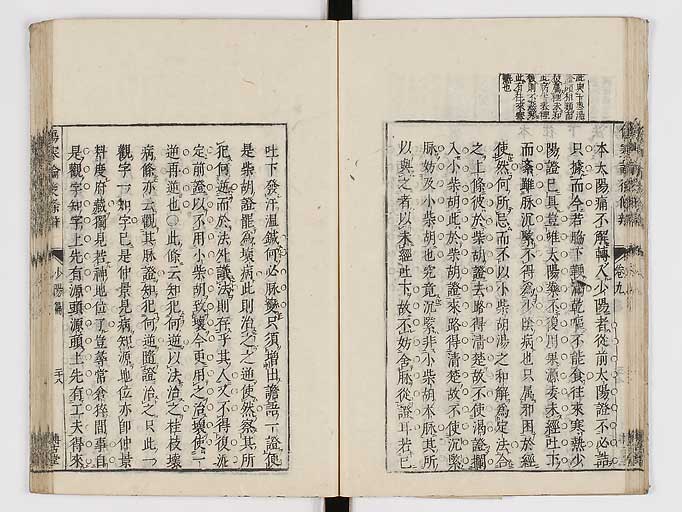 本太陽病不解轉入少陽者從前太陽證不必詰
只據而今若脇下鞕滿乾嘔不能食往來寒熱少
陽證已具豈唯太陽藥不復用果源委未經吐下
而紊雖脈沉緊不得為少陰病也只屬邪困於經
使然何所忌而不以小柴胡湯之和解為定法合
之上條彼於柴胡證去路得清楚故不使渴證攔
入小柴胡此於柴胡證來路得清楚故不使沉緊
脉妨及小柴胡也究竟沉緊非小柴胡本脉其所
以與之者以未經吐下故不妨舍脉從證耳若已
吐下發汗溫鍼何必脉變只須增出譫語一證便
是柴胡證罷為壞病此則治之之逆使然察其所
犯何逆而於法外議法則存乎其人又不得復泥
定前證以不用小柴胡致壞今更用之治壞使一
逆再逆也○此條云知犯何逆以法治之桂枝壞
病條亦云觀其脉證知犯何逆隨證治之只此一
觀字一知字已是仲景見病知源地位亦即仲景
料度府藏獨見若神地位了豈等常倉猝間事自
是觀字知字上先有源頭源頭上先有工夫得來
少陽篇
卷九